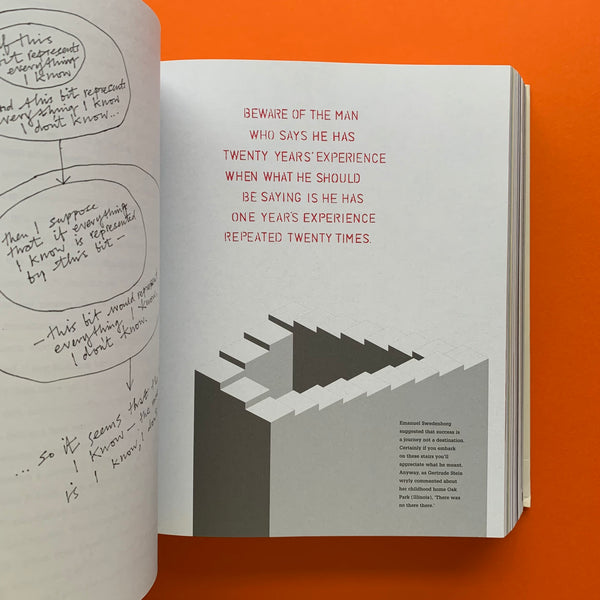 if this
bit represents
everything
I know
and this bit represents
everything I know
I don't know...
then I suppose
that if everything
I know is represented
by this bit –
– this bit would represent
everything I know
I don't know.
... so it seems that the
I know – the
is I know, I don't
BEWARE OF THE MAN
WHO SAYS HE HAS
TWENTY YEARS' EXPERIENCE
WHEN WHAT HE SHOULD
BE SAYING IS HE HAS
ONE YEAR'S EXPERIENCE
REPEATED TWENTY TIMES.
Emanuel Swedenborg
suggested that success is
a journey not a destination.
Certainly if you embark
on these stairs you'll
appreciate what he meant.
Anyway, as Gertrude Stein
wryly commented about
her childhood home Oak
Park (Illinois), 'There was
no there there.'